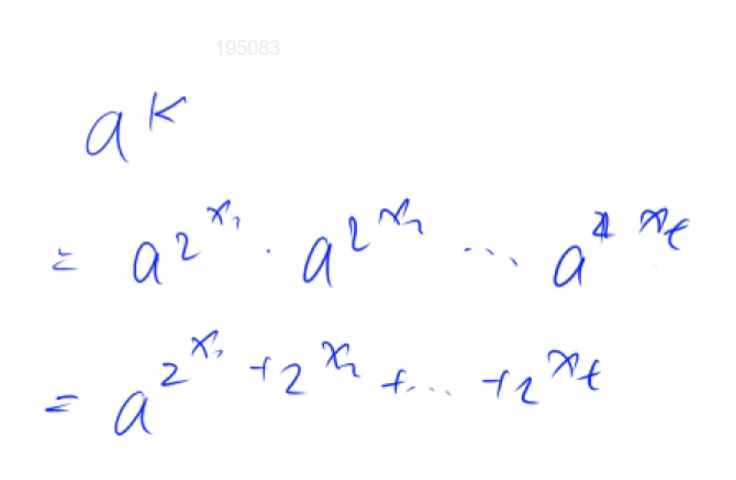 195083
a^k
= a^{2^{x_1}} · a^{2^{x_2}} ... a^{2^{x_t}}
= a^{2^{x_1} + 2^{x_2} + ... + 2^{x_t}}